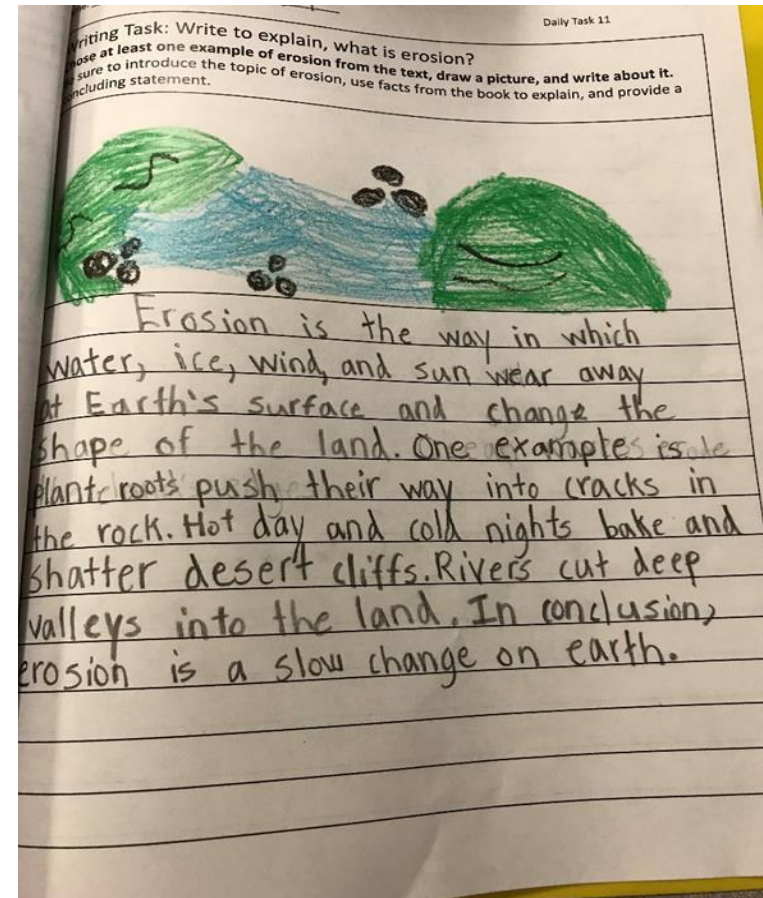 Daily Task 11
Writing Task: Write to explain, what is erosion?
ose at least one example of erosion from the text, draw a picture, and write about it.
sure to introduce the topic of erosion, use facts from the book to explain, and provide a
ncluding statement.
Erosion is the way in which
water, ice, wind, and sun wear away
at Earth's surface and change the
shape of the land. One example is
plant roots push their way into cracks in
the rock. Hot day and cold nights bake and
shatter desert cliffs. Rivers cut deep
valleys into the land. In conclusion,
erosion is a slow change on earth.